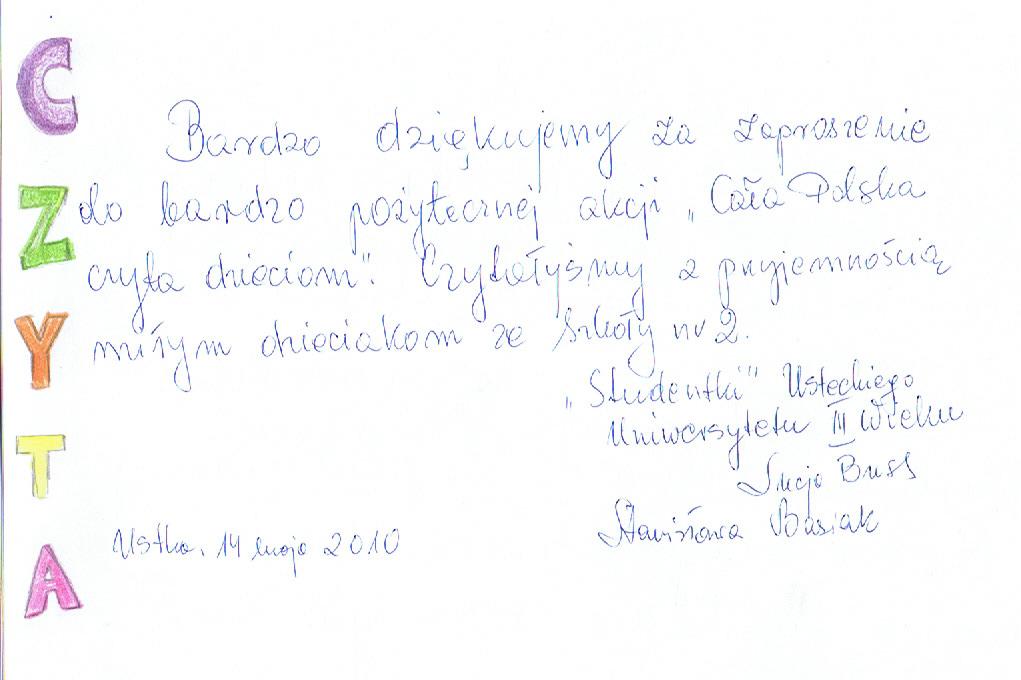 CZYTA
Bardzo dziękujemy za zaproszenie
do bardzo pożytecznej akcji „Cała Polska
czyta dzieciom". Czytałyśmy z przyjemnością
miłym dzieciakom ze Szkoły nr 2.
„Studentki" Usteckiego
Uniwersytetu III Wieku
Łucja Buss
Stanisława Basiak
Ustka, 14 maja 2010